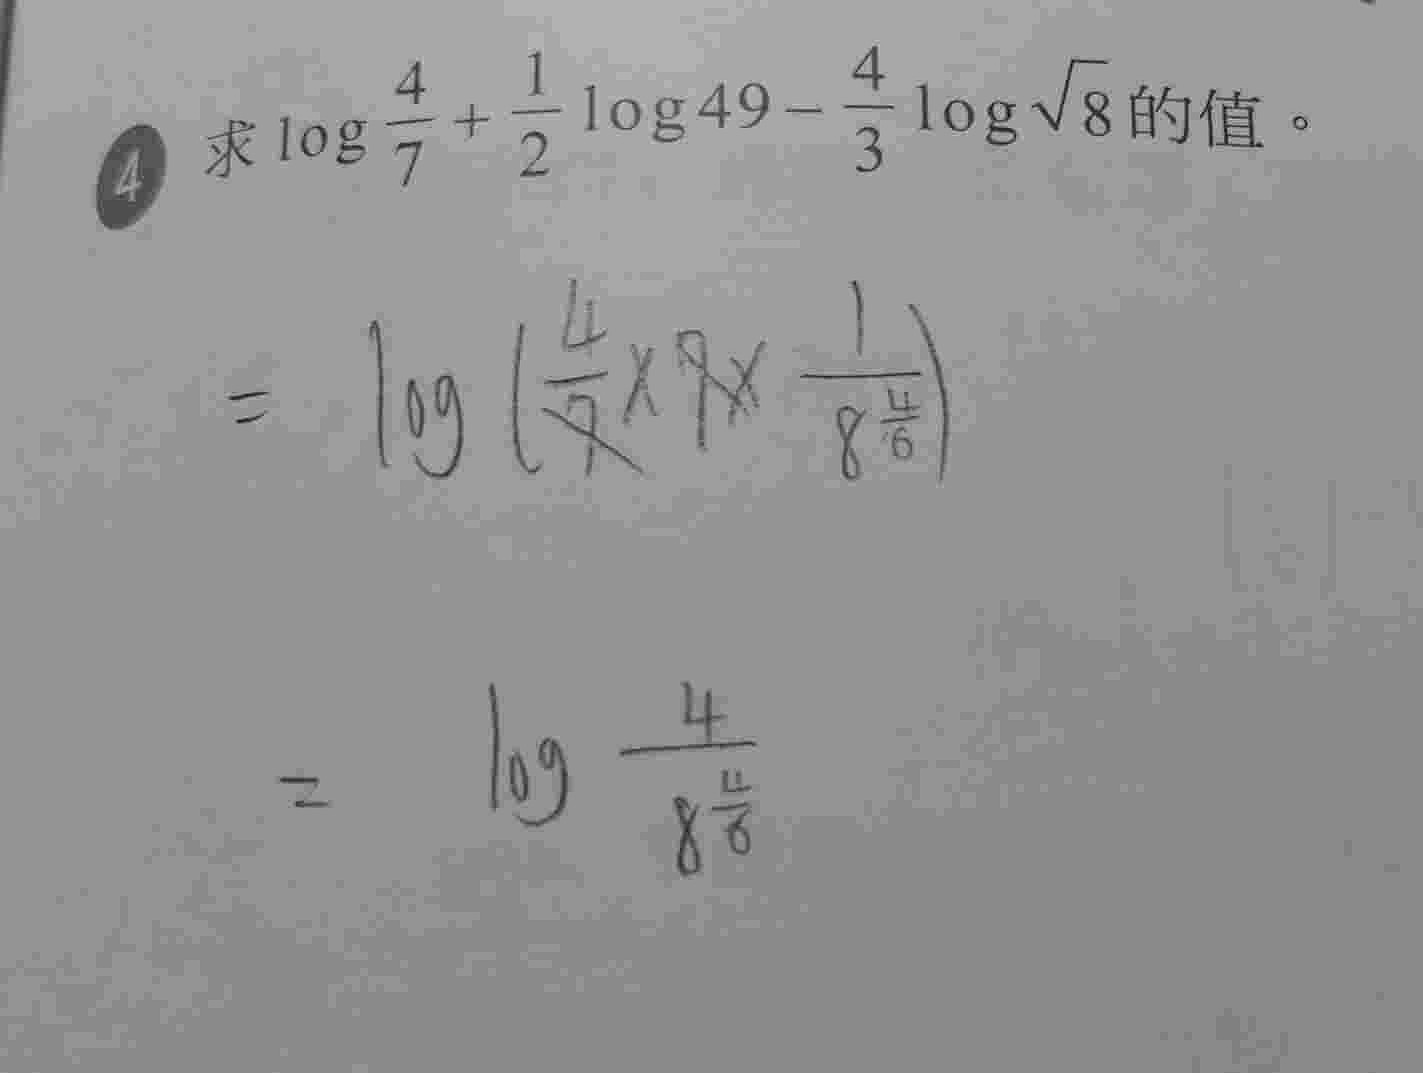 4 求 log 4/7 + 1/2 log 49 − 4/3 log √8 的值。
= log (4/7 × 7 × 1/8^(4/6))
= log 4/8^(4/6)